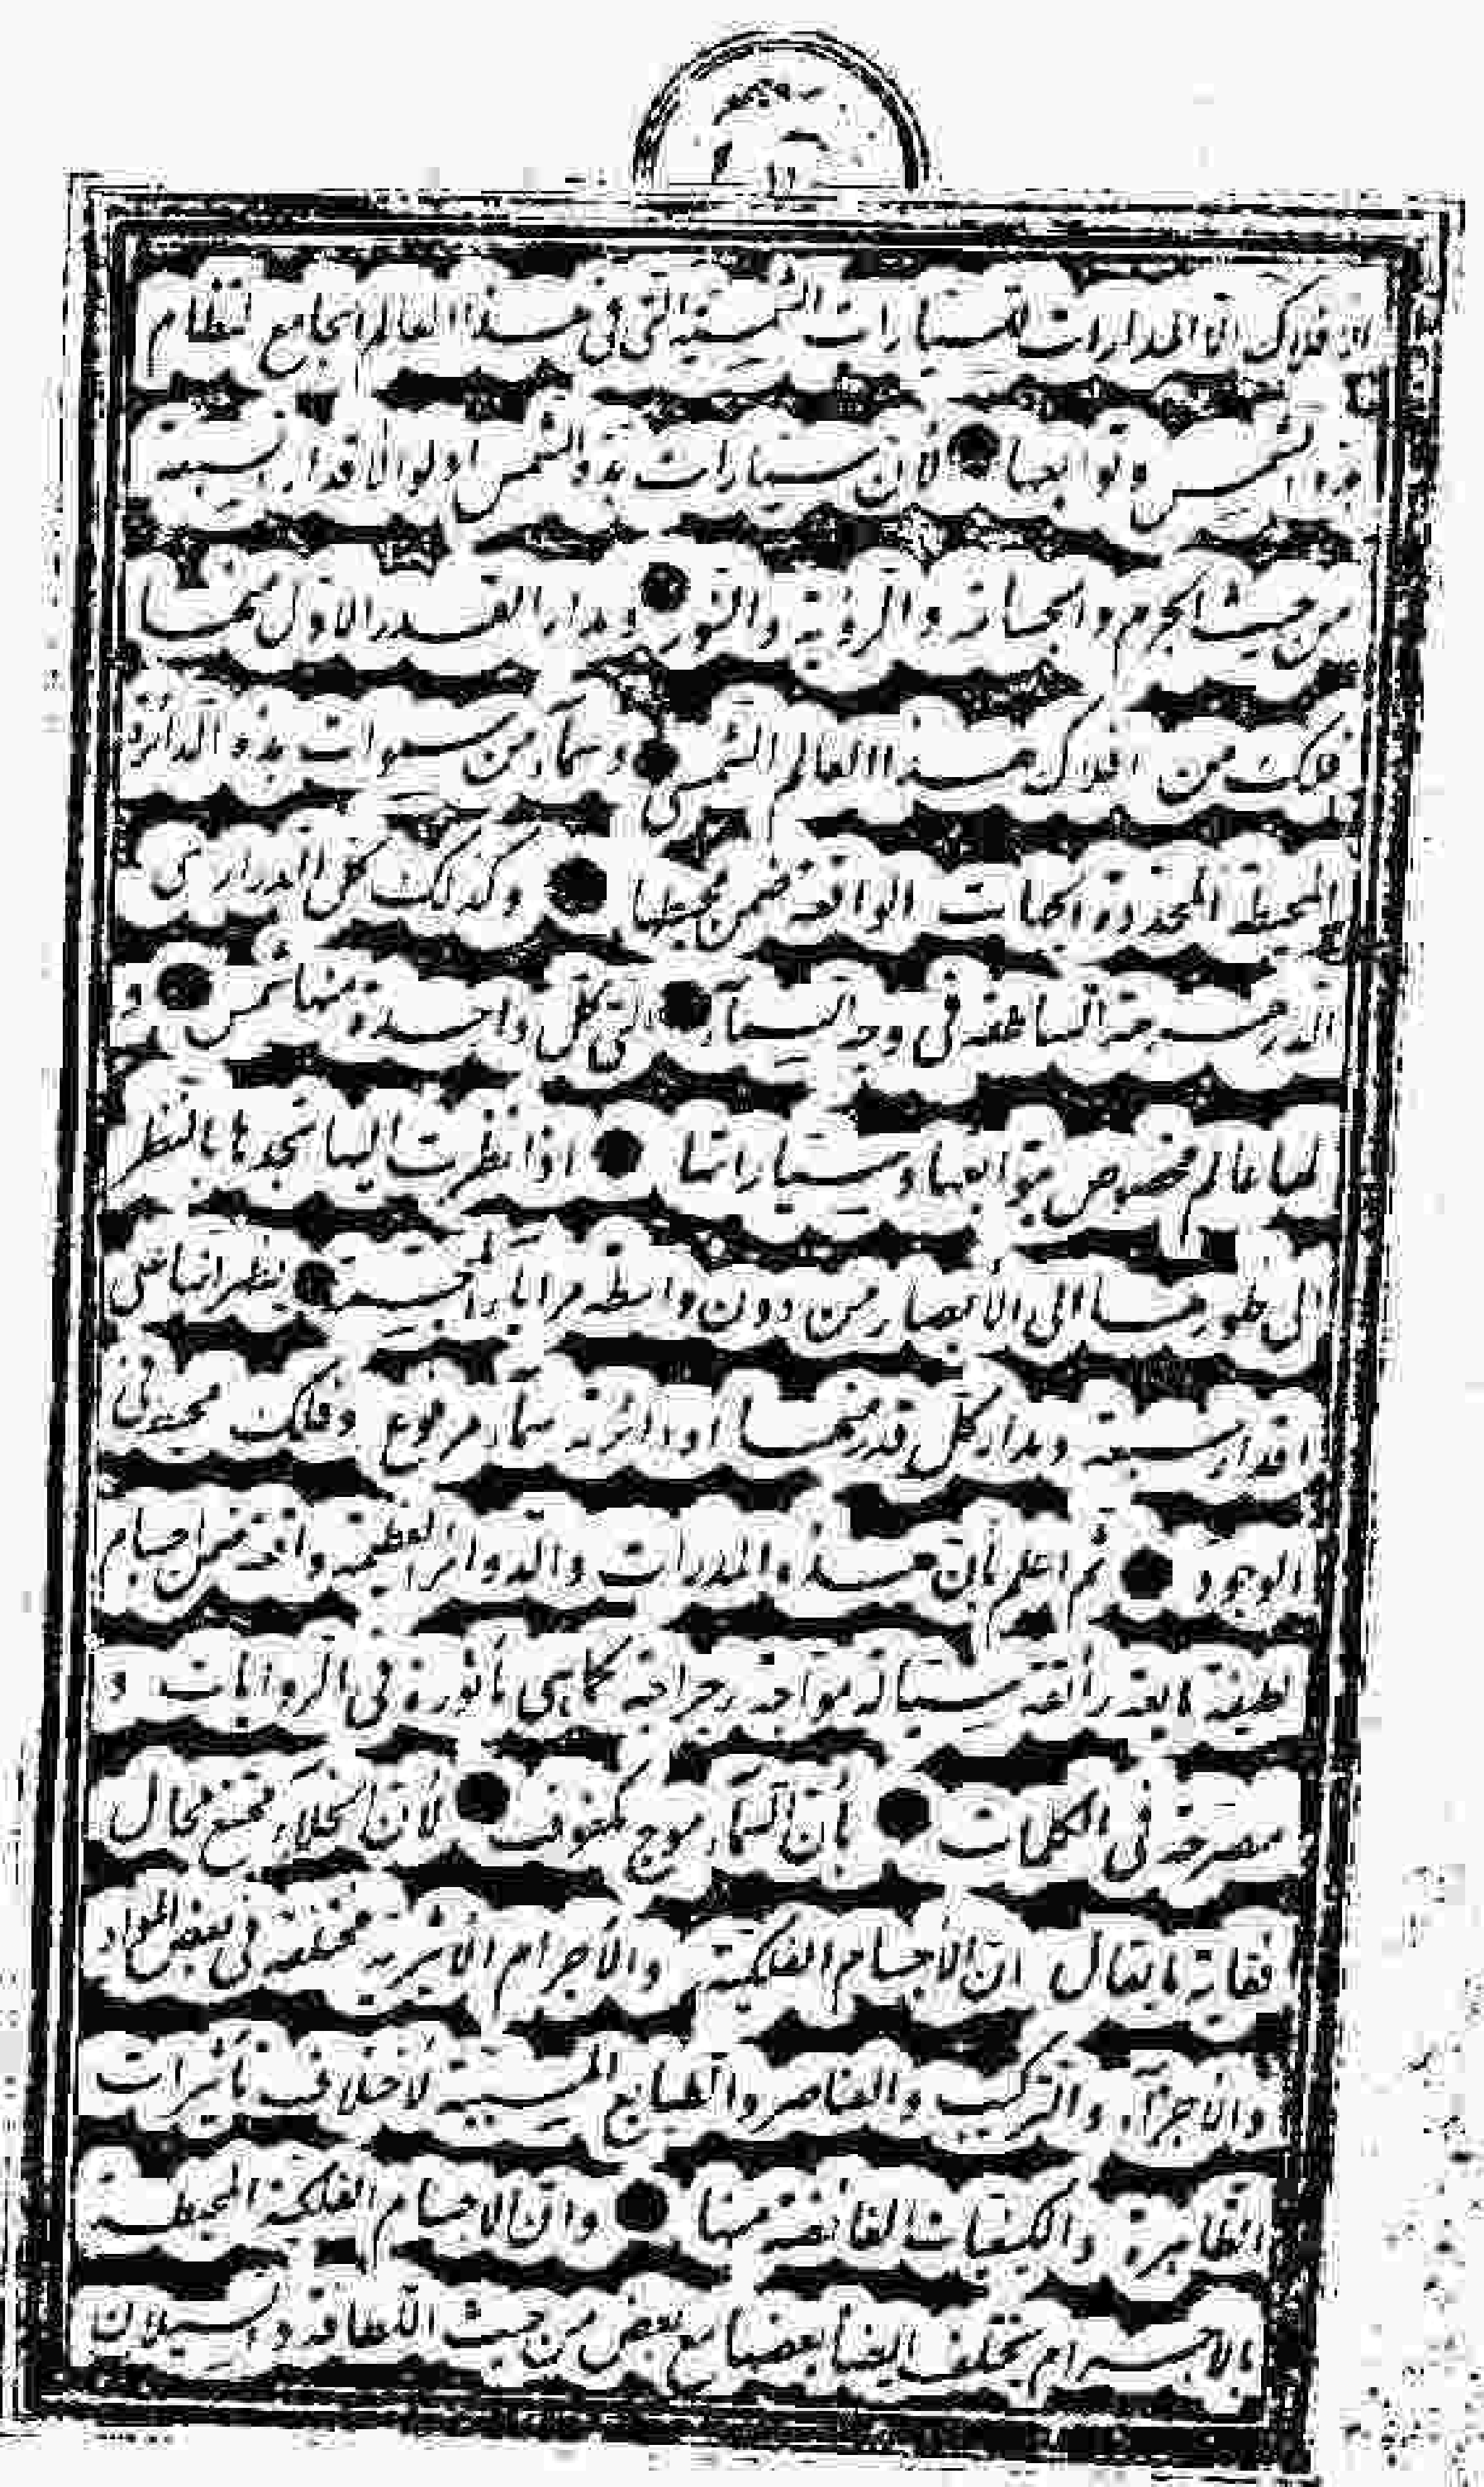 الافلاك انما المدارات للسيارات الشمسية التي في هذا العالم الجامع لنظام
هذه الشمس وتوابعها لان سيارات هذه الشمس اولو الاقدار سبعة
من حيث الجرم والجسامة والرؤية والنور ومدار القدر الاول منها
فلك من افلاك هذا العالم الشمسي وسماء من سموات هذه الدائرة
المحيطة المحددة الجهات الواقعة ضمن محيطها وكذلك كل الدراري
الدرهرهة الساطعة في وجه السماء التي كل واحدة منها شمس و
لها عالم مخصوص بتوابعها وسياراتها اذا نظرت اليها تجدها بالنظر
الى ظهورها الى الابصار من دون واسطة مرايا المجسمة يظهر انها على
اقدار سبعة ومدار كل قدر منها او دائرته سماء مرفوع وفلك محيط في
الوجود ثم اعلم بان هذه المدارات والدوائر العظيمة واقعة ضمن اجسام
لطيفة مايعة رائقة سيالة مواجة رجراجة كما هي مأثورة في الروايات و
مصرحة في الكلمات بأن السماء موج مكفوف لان الخلاء ممتنع محال
فغاية ما يقال ان الاجسام الفلكية والاجرام الاثيرية مختلفة في بعض المواد
والاجزاء والتركيب والعناصر والطبايع المسببة لاختلاف تأثيرات
الظاهرة والكيفيات الفائضة منها وان الاجسام الفلكية المحيطة
بالاجرام تختلف ايضا بعضها مع بعض من حيث اللطافة والسيلان